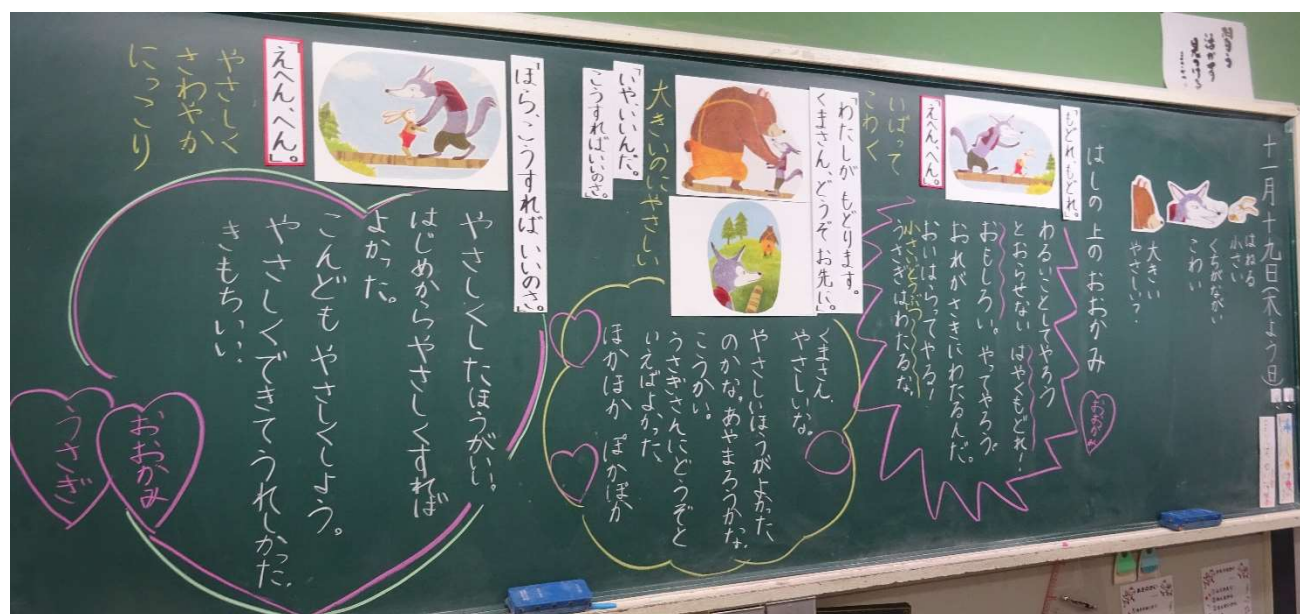 十一月十九日(木よう日)
はねる
小さい
くちがながい
こわい
大きい
やさしい?
はしの 上の おおかみ
おおかみ
「もどれ、もどれ。」
「えへん、へん。」
いばって
こわく
わるいことしてやろう
とおらせない はやくもどれ!
おもしろい。やってやろう。
おれがさきにわたるんだ。
おいはらってやる!
小さいどうぶつ
うさぎはわたるな。
「わたしが もどります。
くまさん、どうぞお先に。」
「いや、いいんだ。
こうすればいいのさ。」
大きいのにやさしい
くまさん、
やさしいな。
やさしいほうがよかった
のかな。あやまろうかな。
こうかい。
うさぎさんにどうぞと
いえばよかった、
ほかほか ぽかぽか
「ほら、こうすれば いいのさ。」
「えへん、へん。」
やさしく
さわやか
にっこり
やさしくしたほうがいい。
はじめからやさしくすれば
よかった。
こんどもやさしくしよう。
やさしくできてうれしかった。
きもちいい。
おおかみ
うさぎ